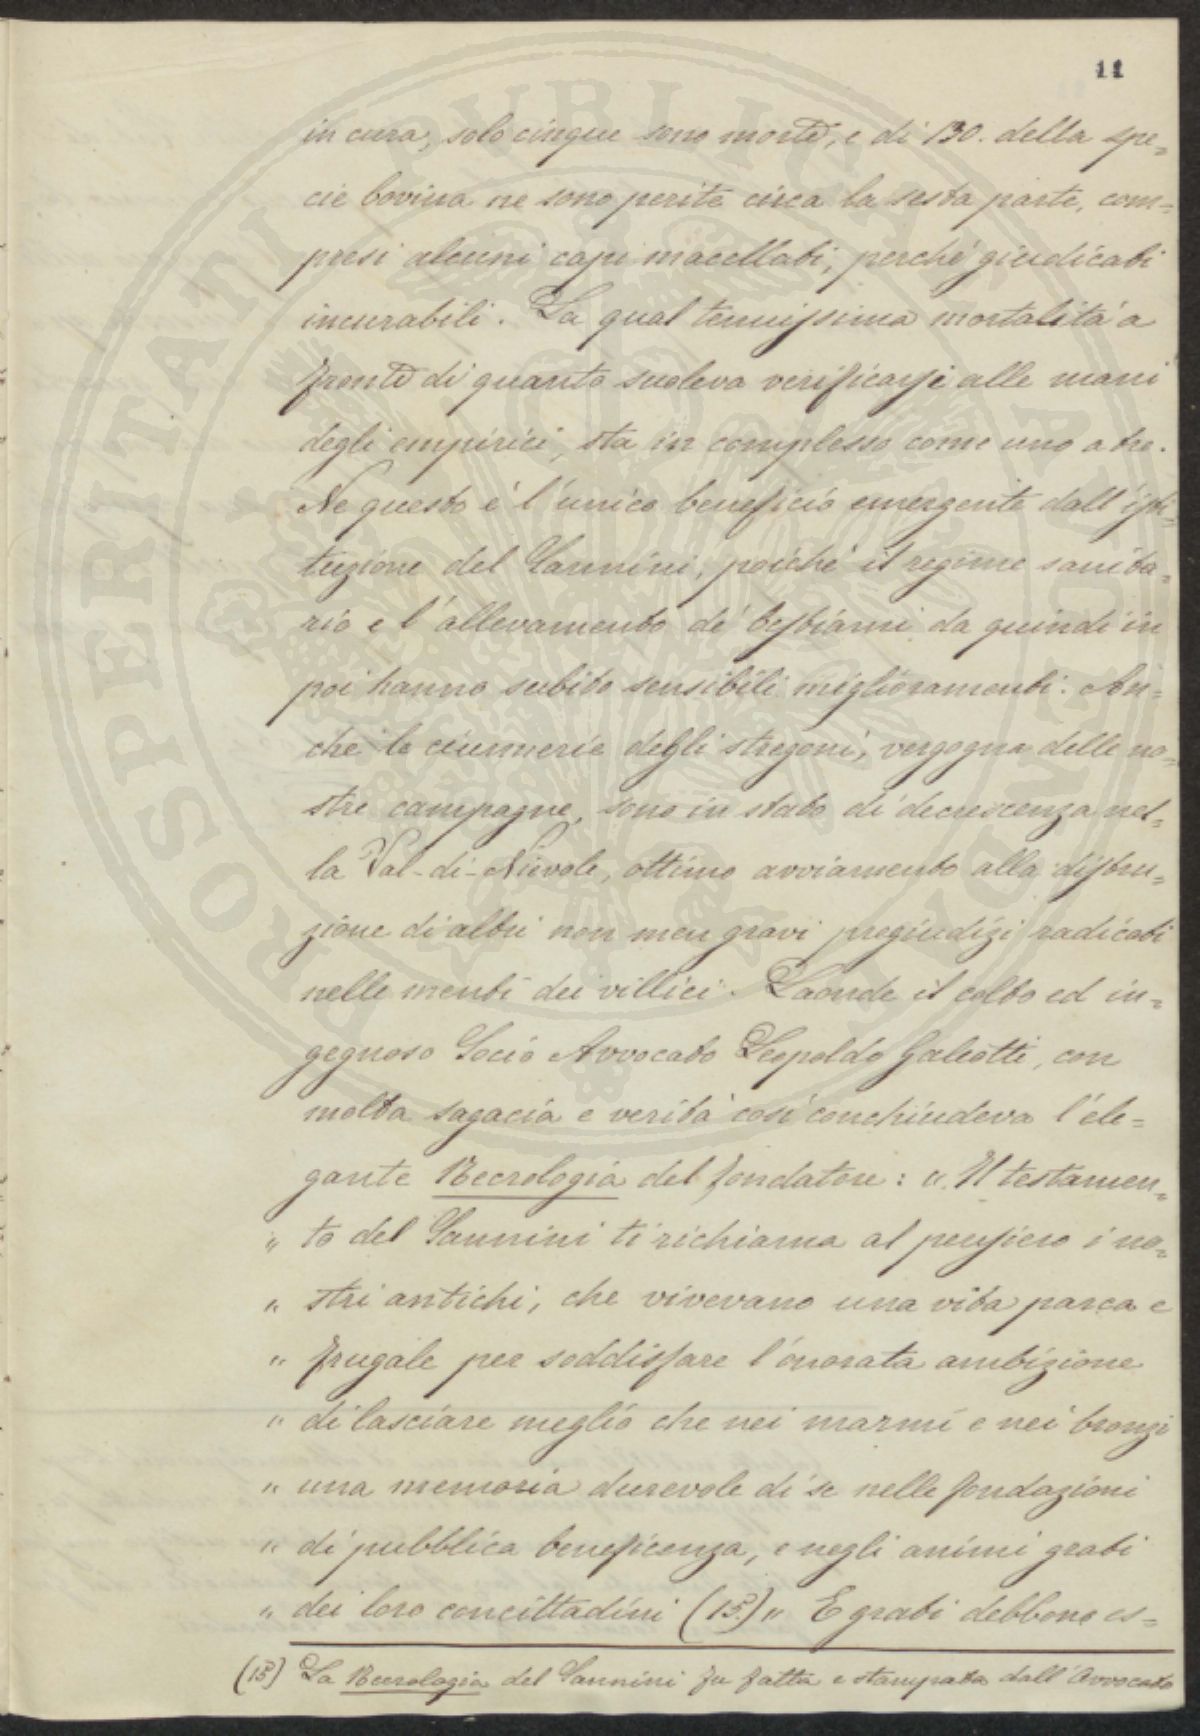 11
in cura, solo cinque sono morte, e di 130. della spe=
cie bovina ne sono perite circa la sesta parte, com=
presi alcuni capi macellati, perché giudicati
incurabili. La qual tenuissima mortalità a
fronte di quanto suoleva verificarsi alle mani
degli empirici, sta in complesso come uno a tre.
Ne questo é l'unico beneficio emergente dall'isti=
tuzione del Vannini, poiché il regime sanita=
rio e l'allevamento de' bestiami da quindi in
poi hanno subito sensibili miglioramenti. An=
che le ciurmerie degli stregoni, vergogna delle no=
stre campagne, sono in stato di decrescenza nel=
la Val-di-Nievole, ottimo avviamento alla distru=
zione di altri non men gravi pregiudizi radicati
nelle menti dei villici. Laonde il colto ed in=
gegnoso Socio Avvocato Leopoldo Galeotti, con
molta sagacia e verità così conchiudeva l'ele=
gante Necrologia del fondatore: " Il testamen=
" to del Vannini ti richiama al pensiero i no=
" stri antichi, che vivevano una vita parca e
" frugale per soddisfare l'onorata ambizione
" di lasciare meglio che nei marmi e nei bronzi
" una memoria durevole di se nelle fondazioni
" di pubblica beneficenza, e negli animi grati
" dei loro concittadini (15) " E grati debbono es=
(15) La Necrologia del Vannini fu fatta e stampata dall'Avvocato
PROSPERITATI PVBLICAE AVGENDAE